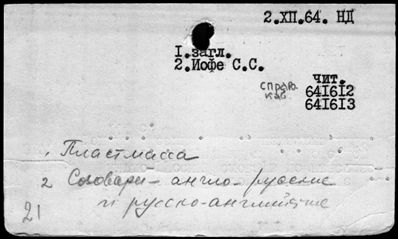 2.XП.64. НД
1.загл.
2.Иофе С.С.
чит.
справ. 641612
каб. 641613
. Пластмасса
2 Словари – англо-русские
и русско-английские
21